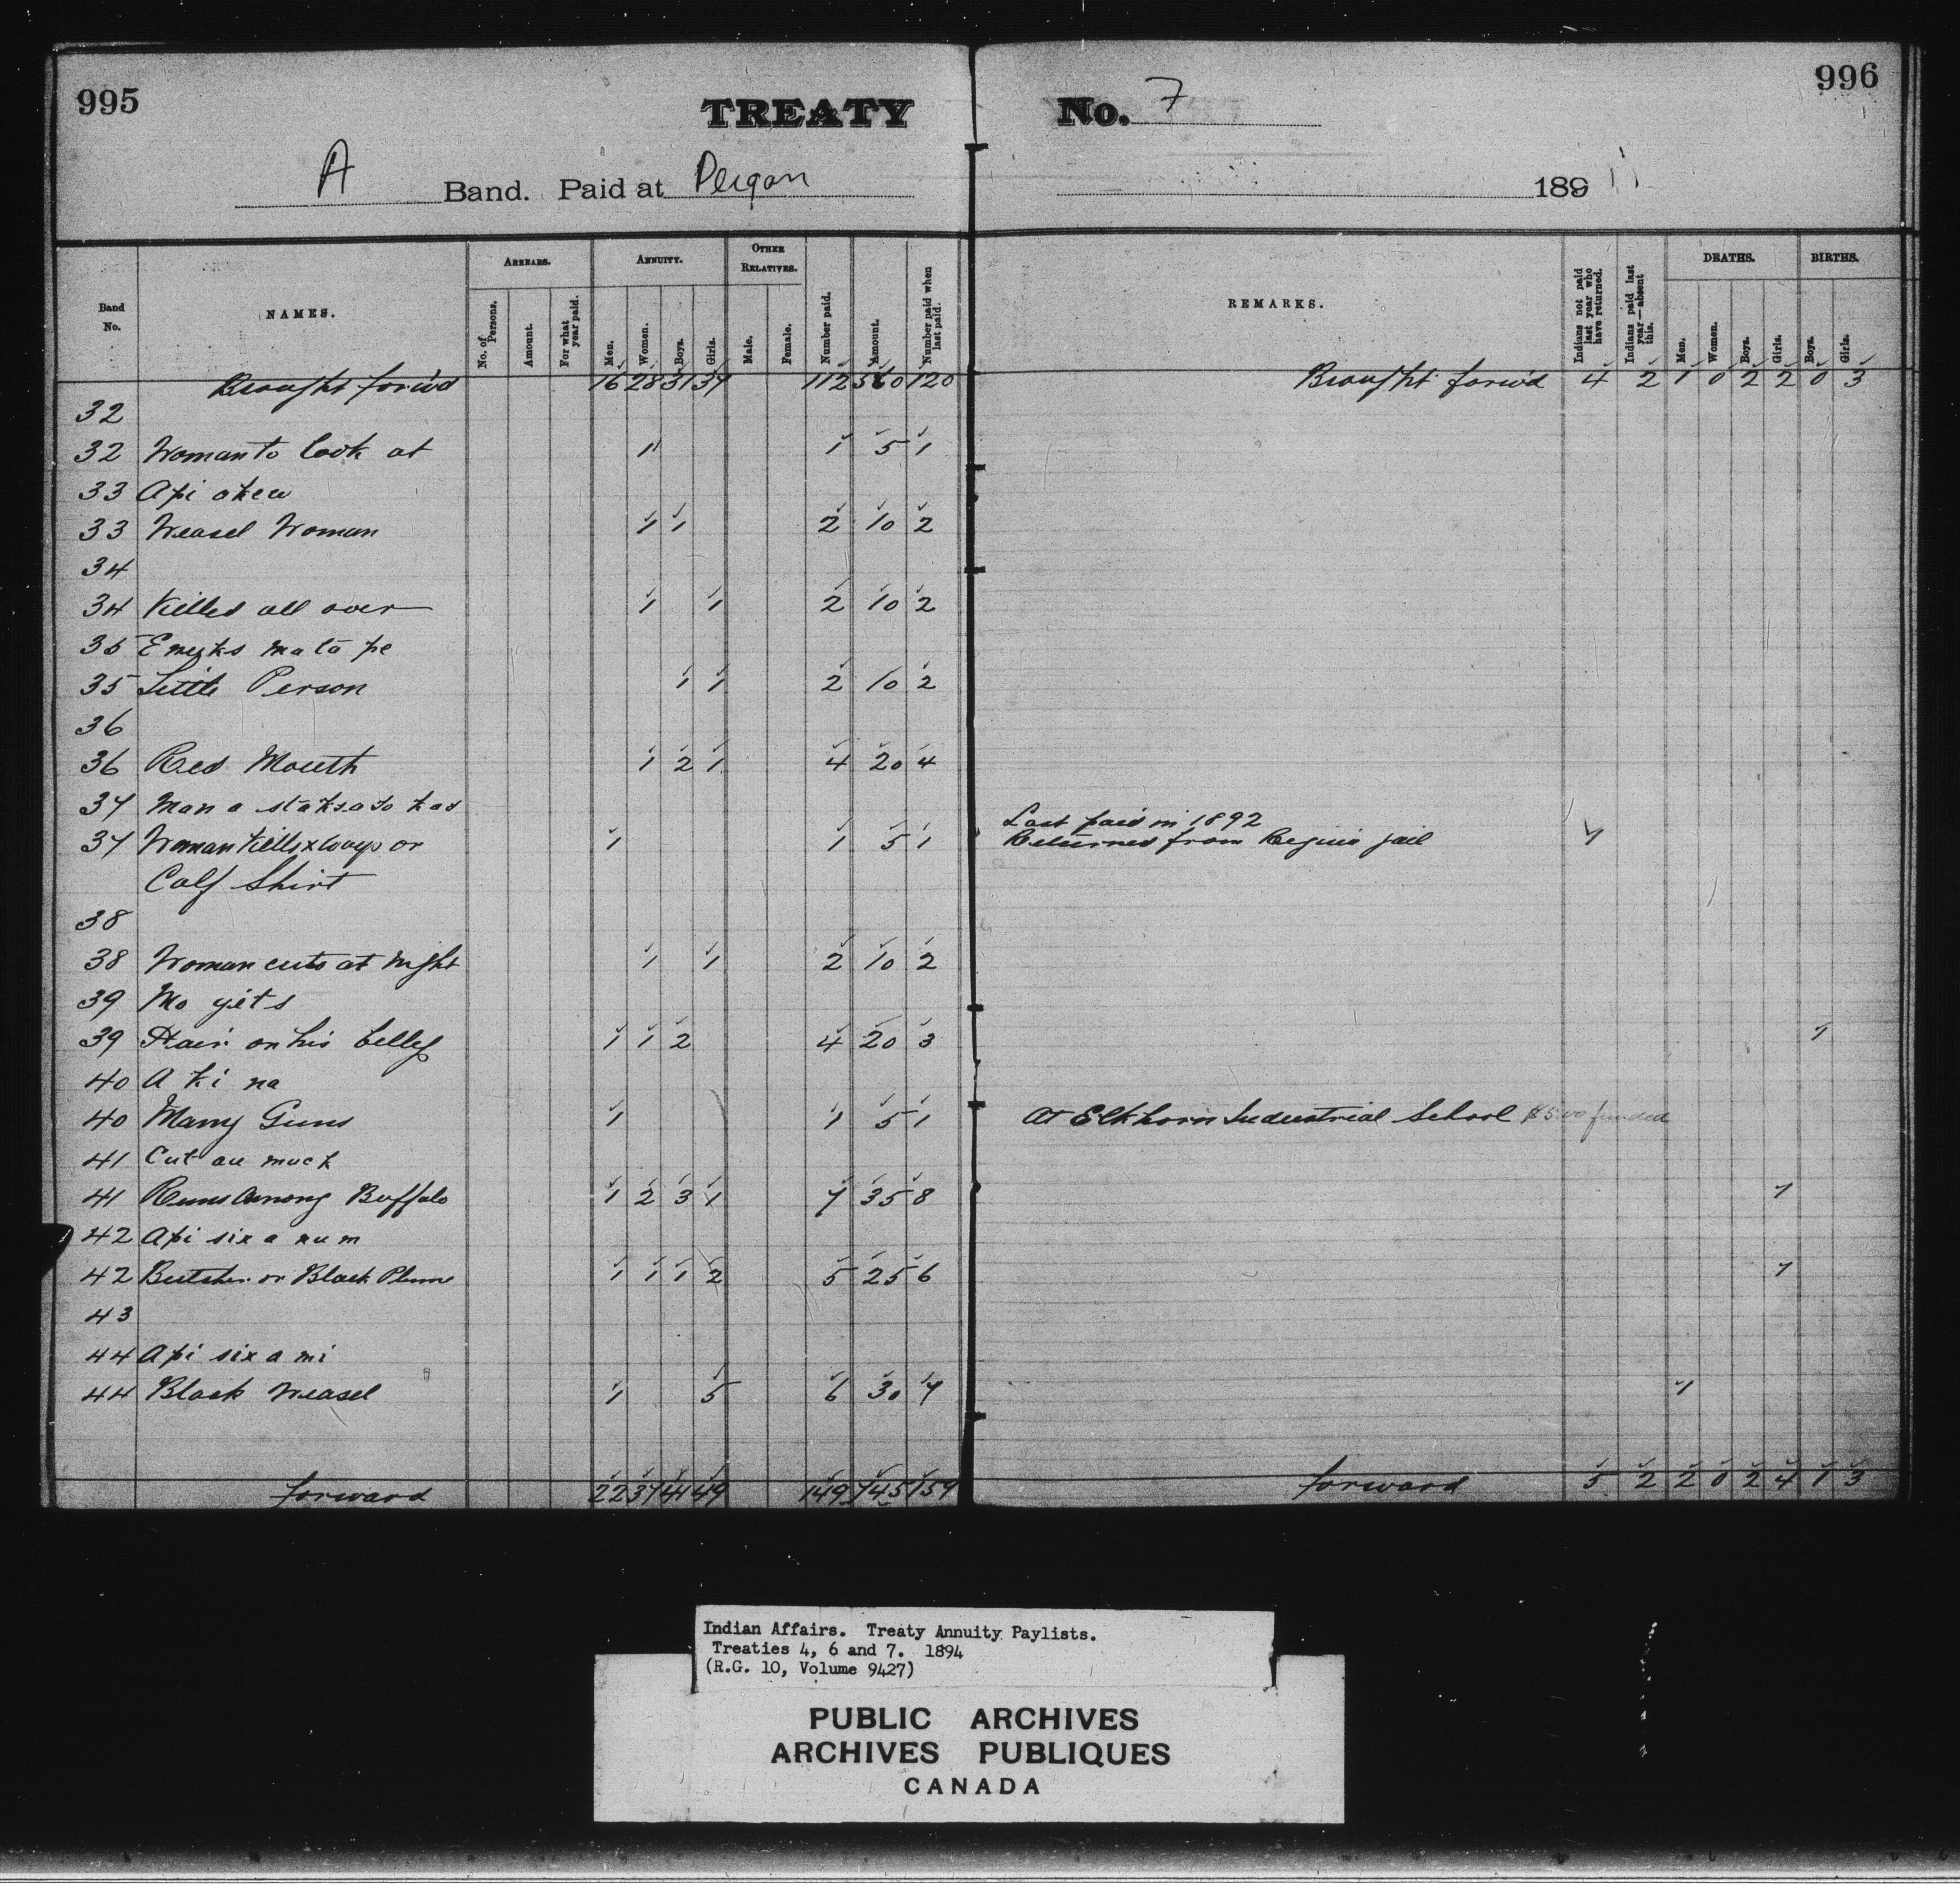 995
996
TREATY No. 7
A Band. Paid at Peigan
189
Band No. NAMES. ARREARS. No. of Persons. Amount. For what year paid. ANNUITY. Men. Women. Boys. Girls. OTHER RELATIVES. Male. Female. Number paid. Amount. Number paid when last paid.
REMARKS. Indians not paid last year who have returned. Indians paid last year—absent this. DEATHS. Men. Women. Boys. Girls. BIRTHS. Boys. Girls.
Brought forw'd 16 28 31 37 112 560 120 Brought forw'd 4 2 1 0 2 2 0 3
32
32 Woman to look at 1 1 5 1
33 Api okew
33 Weasel Woman 1 1 2 10 2
34
34 Killed all over 1 1 2 10 2
35
35 Little Person 1 1 2 10 2
36
36 Red Mouth 1 2 1 4 20 4
37
Last paid in 1892
37 Woman Kills x Ways or 1 1 5 1 Returned from Regina jail 1
Calf Shirt
38
38 Woman cuts at night 1 1 2 10 2
39 Mo yets
39 Hair on his belly 1 1 2 4 20 3 1
40 A ki na
40 Many Guns 1 1 5 1 At Elkhorn Industrial School $5.00 funded
41 Cut au muck
41 Runs Among Buffalo 1 2 3 1 7 35 8 1
42 Api six a num
42 Butcher or Black Plume 1 1 1 2 5 25 6 1
43
44 Api six a mi
44 Black Weasel 1 5 6 30 7 1
forward 22 37 41 49 149 745 159 forward 5 2 2 0 2 4 1 3
Indian Affairs. Treaty Annuity Paylists.
Treaties 4, 6 and 7. 1894
(R.G. 10, Volume 9427)
PUBLIC ARCHIVES
ARCHIVES PUBLIQUES
CANADA